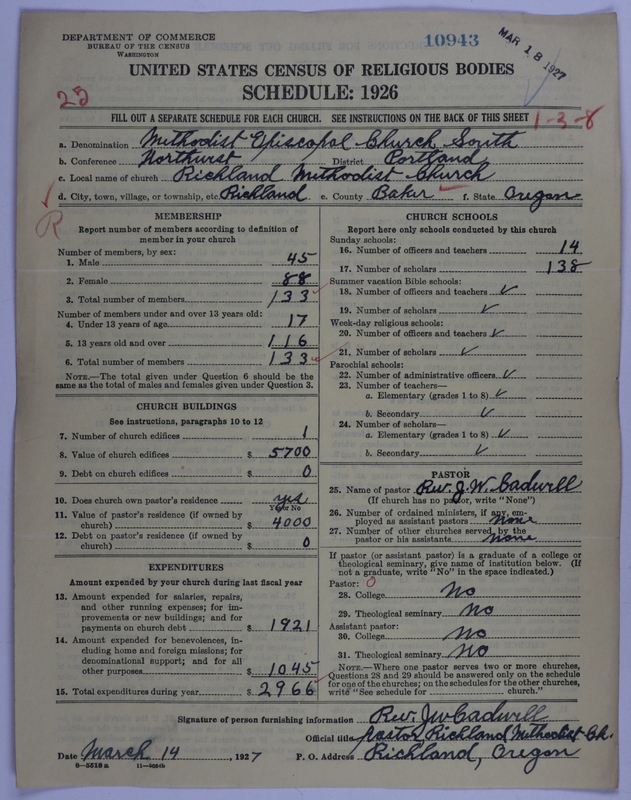 DEPARTMENT OF COMMERCE
BUREAU OF THE CENSUS
WASHINGTON
10943
MAR 18 1927
UNITED STATES CENSUS OF RELIGIOUS BODIES
SCHEDULE: 1926
FILL OUT A SEPARATE SCHEDULE FOR EACH CHURCH. SEE INSTRUCTIONS ON THE BACK OF THIS SHEET
1-3-8
a. Denomination Methodist Episcopal Church South
b. Conference Northwest District Portland
c. Local name of church Richland Methodist Church
d. City, town, village, or township, etc. Richland e. County Baker f. State Oregon
R
MEMBERSHIP
Report number of members according to definition of
member in your church
Number of members, by sex:
1. Male 45
2. Female 88
3. Total number of members 133
Number of members under and over 13 years old:
4. Under 13 years of age 17
5. 13 years old and over 116
6. Total number of members 133
NOTE.—The total given under Question 6 should be
same as the total of males and females given under Question 3.
CHURCH BUILDINGS
See instructions, paragraphs 10 to 12
7. Number of church edifices 1
8. Value of church edifices $ 5700
9. Debt on church edifices $ 0
10. Does church own pastor's residence yes
Yes or No
11. Value of pastor's residence (if owned by
church) $ 4000
12. Debt on pastor's residence (if owned by
church) $ 0
EXPENDITURES
Amount expended by your church during last fiscal year
13. Amount expended for salaries, repairs,
and other running expenses; for im-
provements or new buildings; and for
payments on church debt $ 1921
14. Amount expended for benevolences, in-
cluding home and foreign missions; for
denominational support; and for all
other purposes $ 1045
15. Total expenditures during year $ 2966
CHURCH SCHOOLS
Report here only schools conducted by this church
Sunday schools:
16. Number of officers and teachers 14
17. Number of scholars 138
Summer vacation Bible schools:
18. Number of officers and teachers ✓
19. Number of scholars ✓
Week-day religious schools:
20. Number of officers and teachers ✓
21. Number of scholars ✓
Parochial schools:
22. Number of administrative officers ✓
23. Number of teachers—
a. Elementary (grades 1 to 8) ✓
b. Secondary ✓
24. Number of scholars—
a. Elementary (grades 1 to 8) ✓
b. Secondary ✓
PASTOR
25. Name of pastor Rev. J. W. Cadwell
(If church has no pastor, write "None")
26. Number of ordained ministers, if any, em-
ployed as assistant pastors None
27. Number of other churches served by the
pastor or his assistants None
If pastor (or assistant pastor) is a graduate of a college or
theological seminary, give name of institution below. (If
not a graduate, write "No" in the space indicated.)
Pastor: 0
28. College No
29. Theological seminary No
Assistant pastor:
30. College No
31. Theological seminary No
NOTE.—Where one pastor serves two or more churches,
Questions 28 and 29 should be answered only on the schedule
for one of the churches; on the schedules for the other churches,
write "See schedule for church."
Signature of person furnishing information Rev. J W Cadwell
Official title Pastor, Richland Methodist Ch.
Date March 14, 1927 P. O. Address Richland, Oregon
8—5518 a 11—9054b